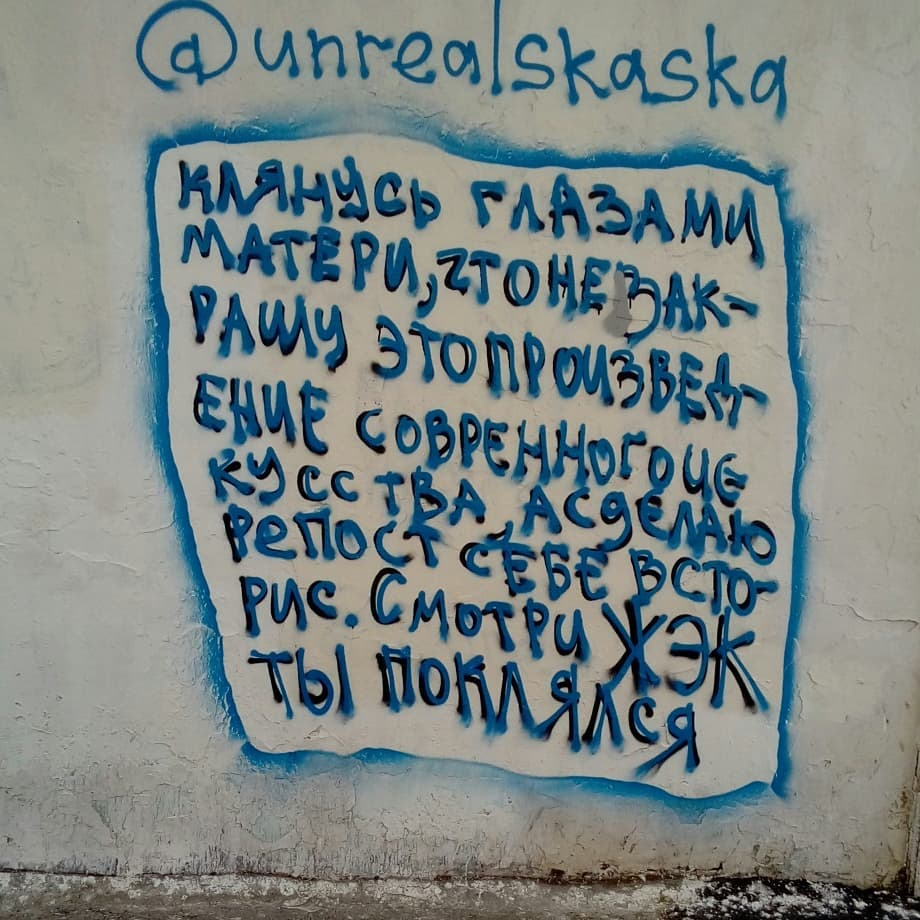 @unrealskaska
КЛЯНУСЬ ГЛАЗАМИ
МАТЕРИ, ЧТО НЕ ЗАК-
РАШУ ЭТО ПРОИЗВЕД-
ЕНИЕ СОВРЕННОГО ИС-
КУССТВА, А СДЕЛАЮ
РЕПОСТ СЕБЕ В СТО-
РИС. СМОТРИ ЖЭК
ТЫ ПОКЛЯЛСЯ